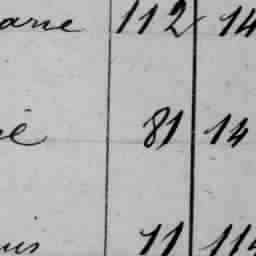 ane 112 14
el 81 14
uis 11 114